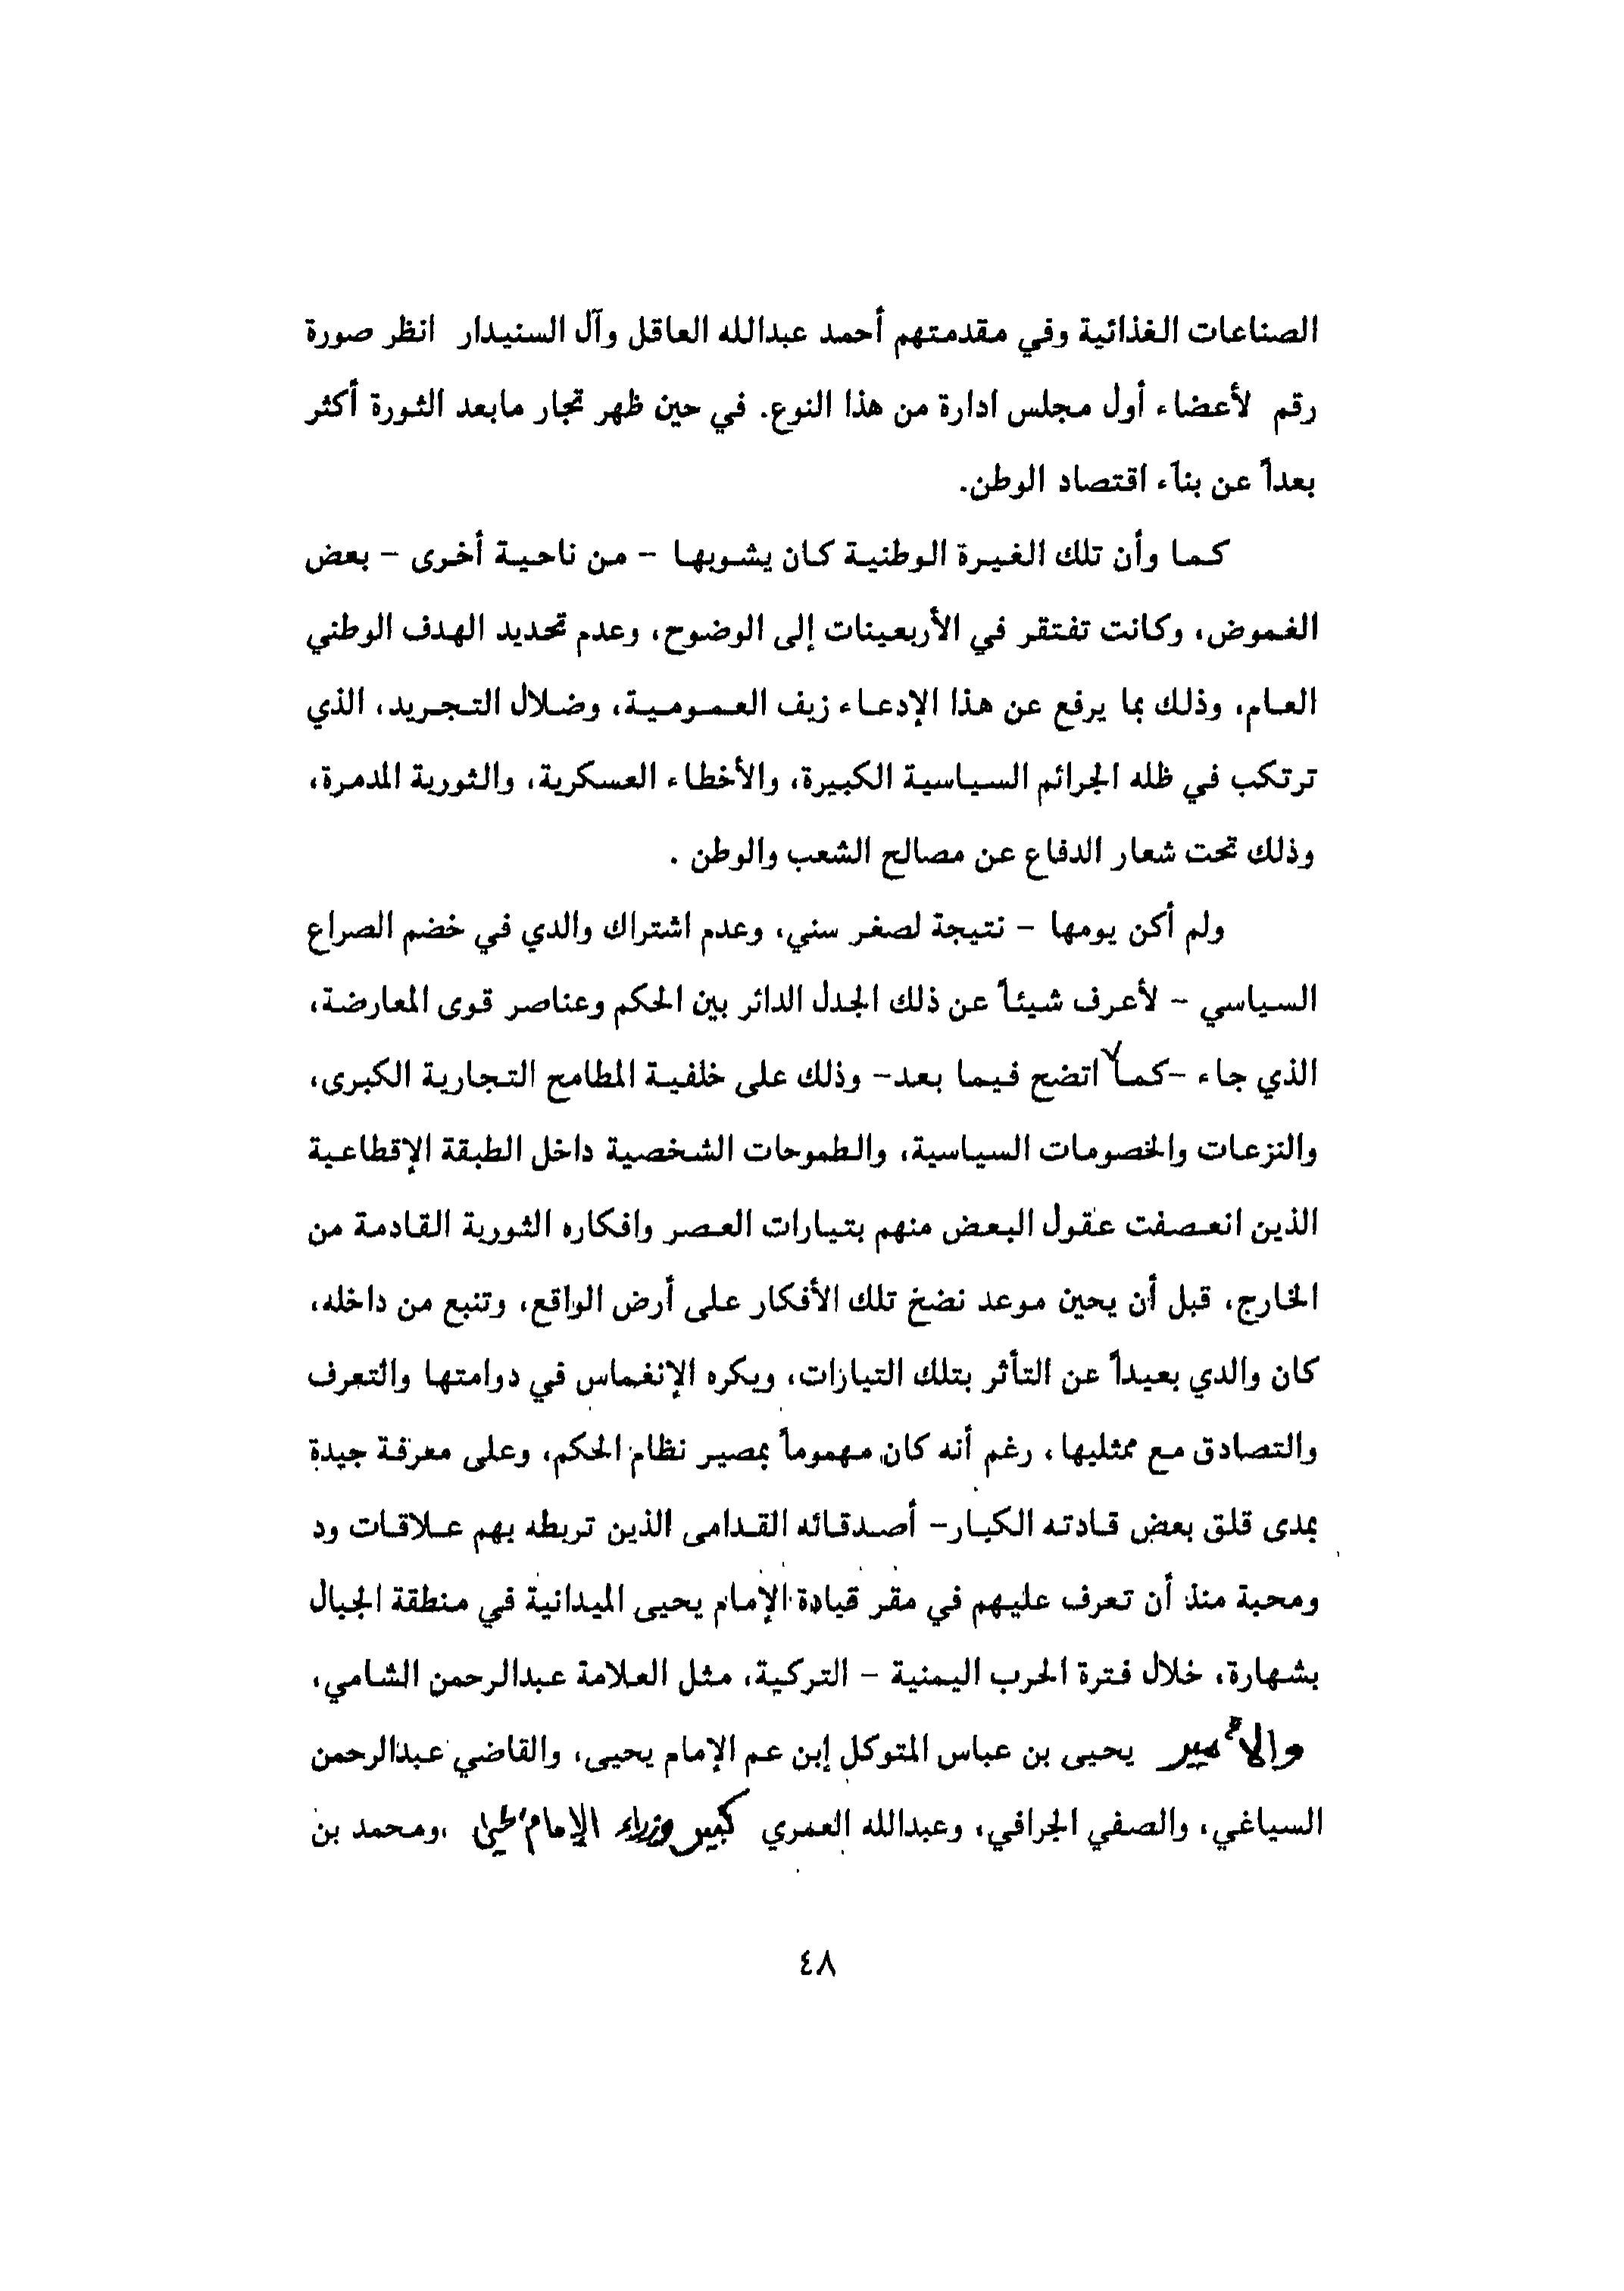 الصناعات الغذائية وفي مقدمتهم أحمد عبدالله العاقل وآل السنيدار انظر صورة
رقم لأعضاء أول مجلس ادارة من هذا النوع. في حين ظهر تجار مابعد الثورة أكثر
بعداً عن بناء اقتصاد الوطن.
كما وأن تلك الغيرة الوطنية كان يشوبها - من ناحية أخرى - بعض
الغموض، وكانت تفتقر في الأربعينات إلى الوضوح، وعدم تحديد الهدف الوطني
العام، وذلك بما يرفع عن هذا الإدعاء زيف العمومية، وضلال التجريد، الذي
ترتكب في ظله الجرائم السياسية الكبيرة، والأخطاء العسكرية، والثورية المدمرة،
وذلك تحت شعار الدفاع عن مصالح الشعب والوطن .
ولم أكن يومها - نتيجة لصغر سني، وعدم اشتراك والدي في خضم الصراع
السياسي - لأعرف شيئاً عن ذلك الجدل الدائر بين الحكم وعناصر قوى المعارضة،
الذي جاء -كما اتضح فيما بعد- وذلك على خلفية المطامح التجارية الكبرى،
والنزعات والخصومات السياسية، والطموحات الشخصية داخل الطبقة الإقطاعية
الذين انعصفت عقول البعض منهم بتيارات العصر وافكاره الثورية القادمة من
الخارج، قبل أن يحين موعد نضخ تلك الأفكار على أرض الواقع، وتنبع من داخله،
كان والدي بعيداً عن التأثر بتلك التيارات، ويكره الإنغماس في دوامتها والتعرف
والتصادق مع ممثليها، رغم أنه كان مهموماً بمصير نظام الحكم، وعلى معرفة جيدة
بمدى قلق بعض قادته الكبار- أصدقائه القدامى الذين تربطه بهم علاقات ود
ومحبة منذ أن تعرف عليهم في مقر قيادة الإمام يحيى الميدانية في منطقة الجبال
بشهارة، خلال فترة الحرب اليمنية - التركية، مثل العلامة عبدالرحمن الشامي،
والأمير يحيى بن عباس المتوكل إبن عم الإمام يحيى، والقاضي عبدالرحمن
السياغي، والصفي الجرافي، وعبدالله العمري كبير وزراء الإمام يحيى ،ومحمد بن
٤٨